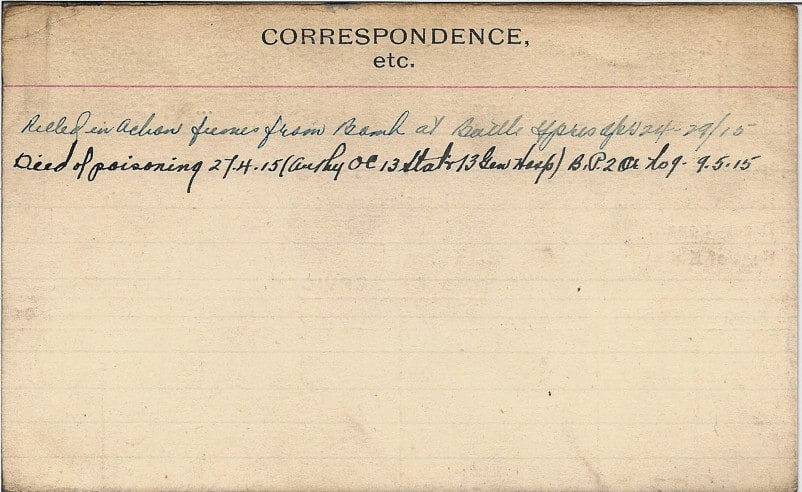 CORRESPONDENCE,
etc.
Killed in Action fumes from Bomb at Battle Ypres Apl 24-29/15
Died of poisoning 27.4.15 (Authy OC 13 Stat'y 13 Gen Hosp) B.P.2 9.5.15